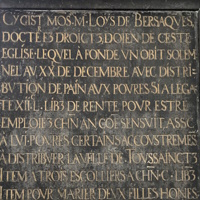 CY GIST MOS. M. LOYS DE BERSAQVES,
DOCTE 3 DROICT 3 DOIEN DE CESTE
EGLISE LEQVEL A FONDE VN OBIT SOLEM
NEL AV XX DE DECEMBRE AVEC DISTRI
BVTION DE PAIN AVX POVRES SI A LEGA
TE XII L. LIB3 DE RENTE POVR ESTRE
EMPLOIE 3 CHN AN COE SENSVIT ASSC
A LVI POVRES CERTAINS ACCOVSTREMES
A DISTRIBVER LA VELLE DE TOVSSAINCT 3
ITEM A TROIS ESCOLLIERS A CHN C. LIB3
ITEM POVR MARIER DEVX FILLES HONES